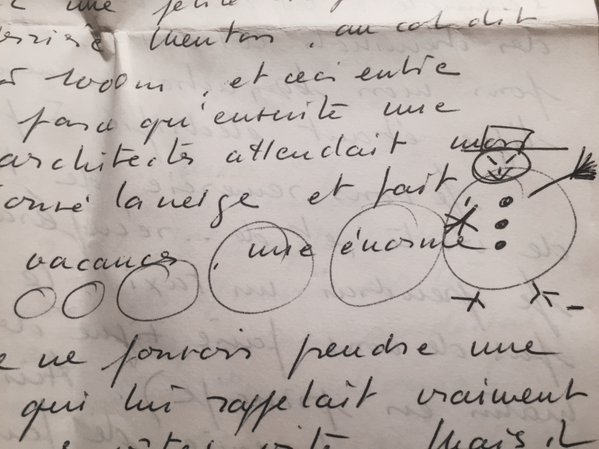 une petite
menton, au col dit
à 1000m, et ceci entre
parce qu'ensuite une
architectes attendait mon
la neige et fait
vacances, une énorme
ne pouvois prendre une
qui lui rappelait vraiment
vite. Mais il